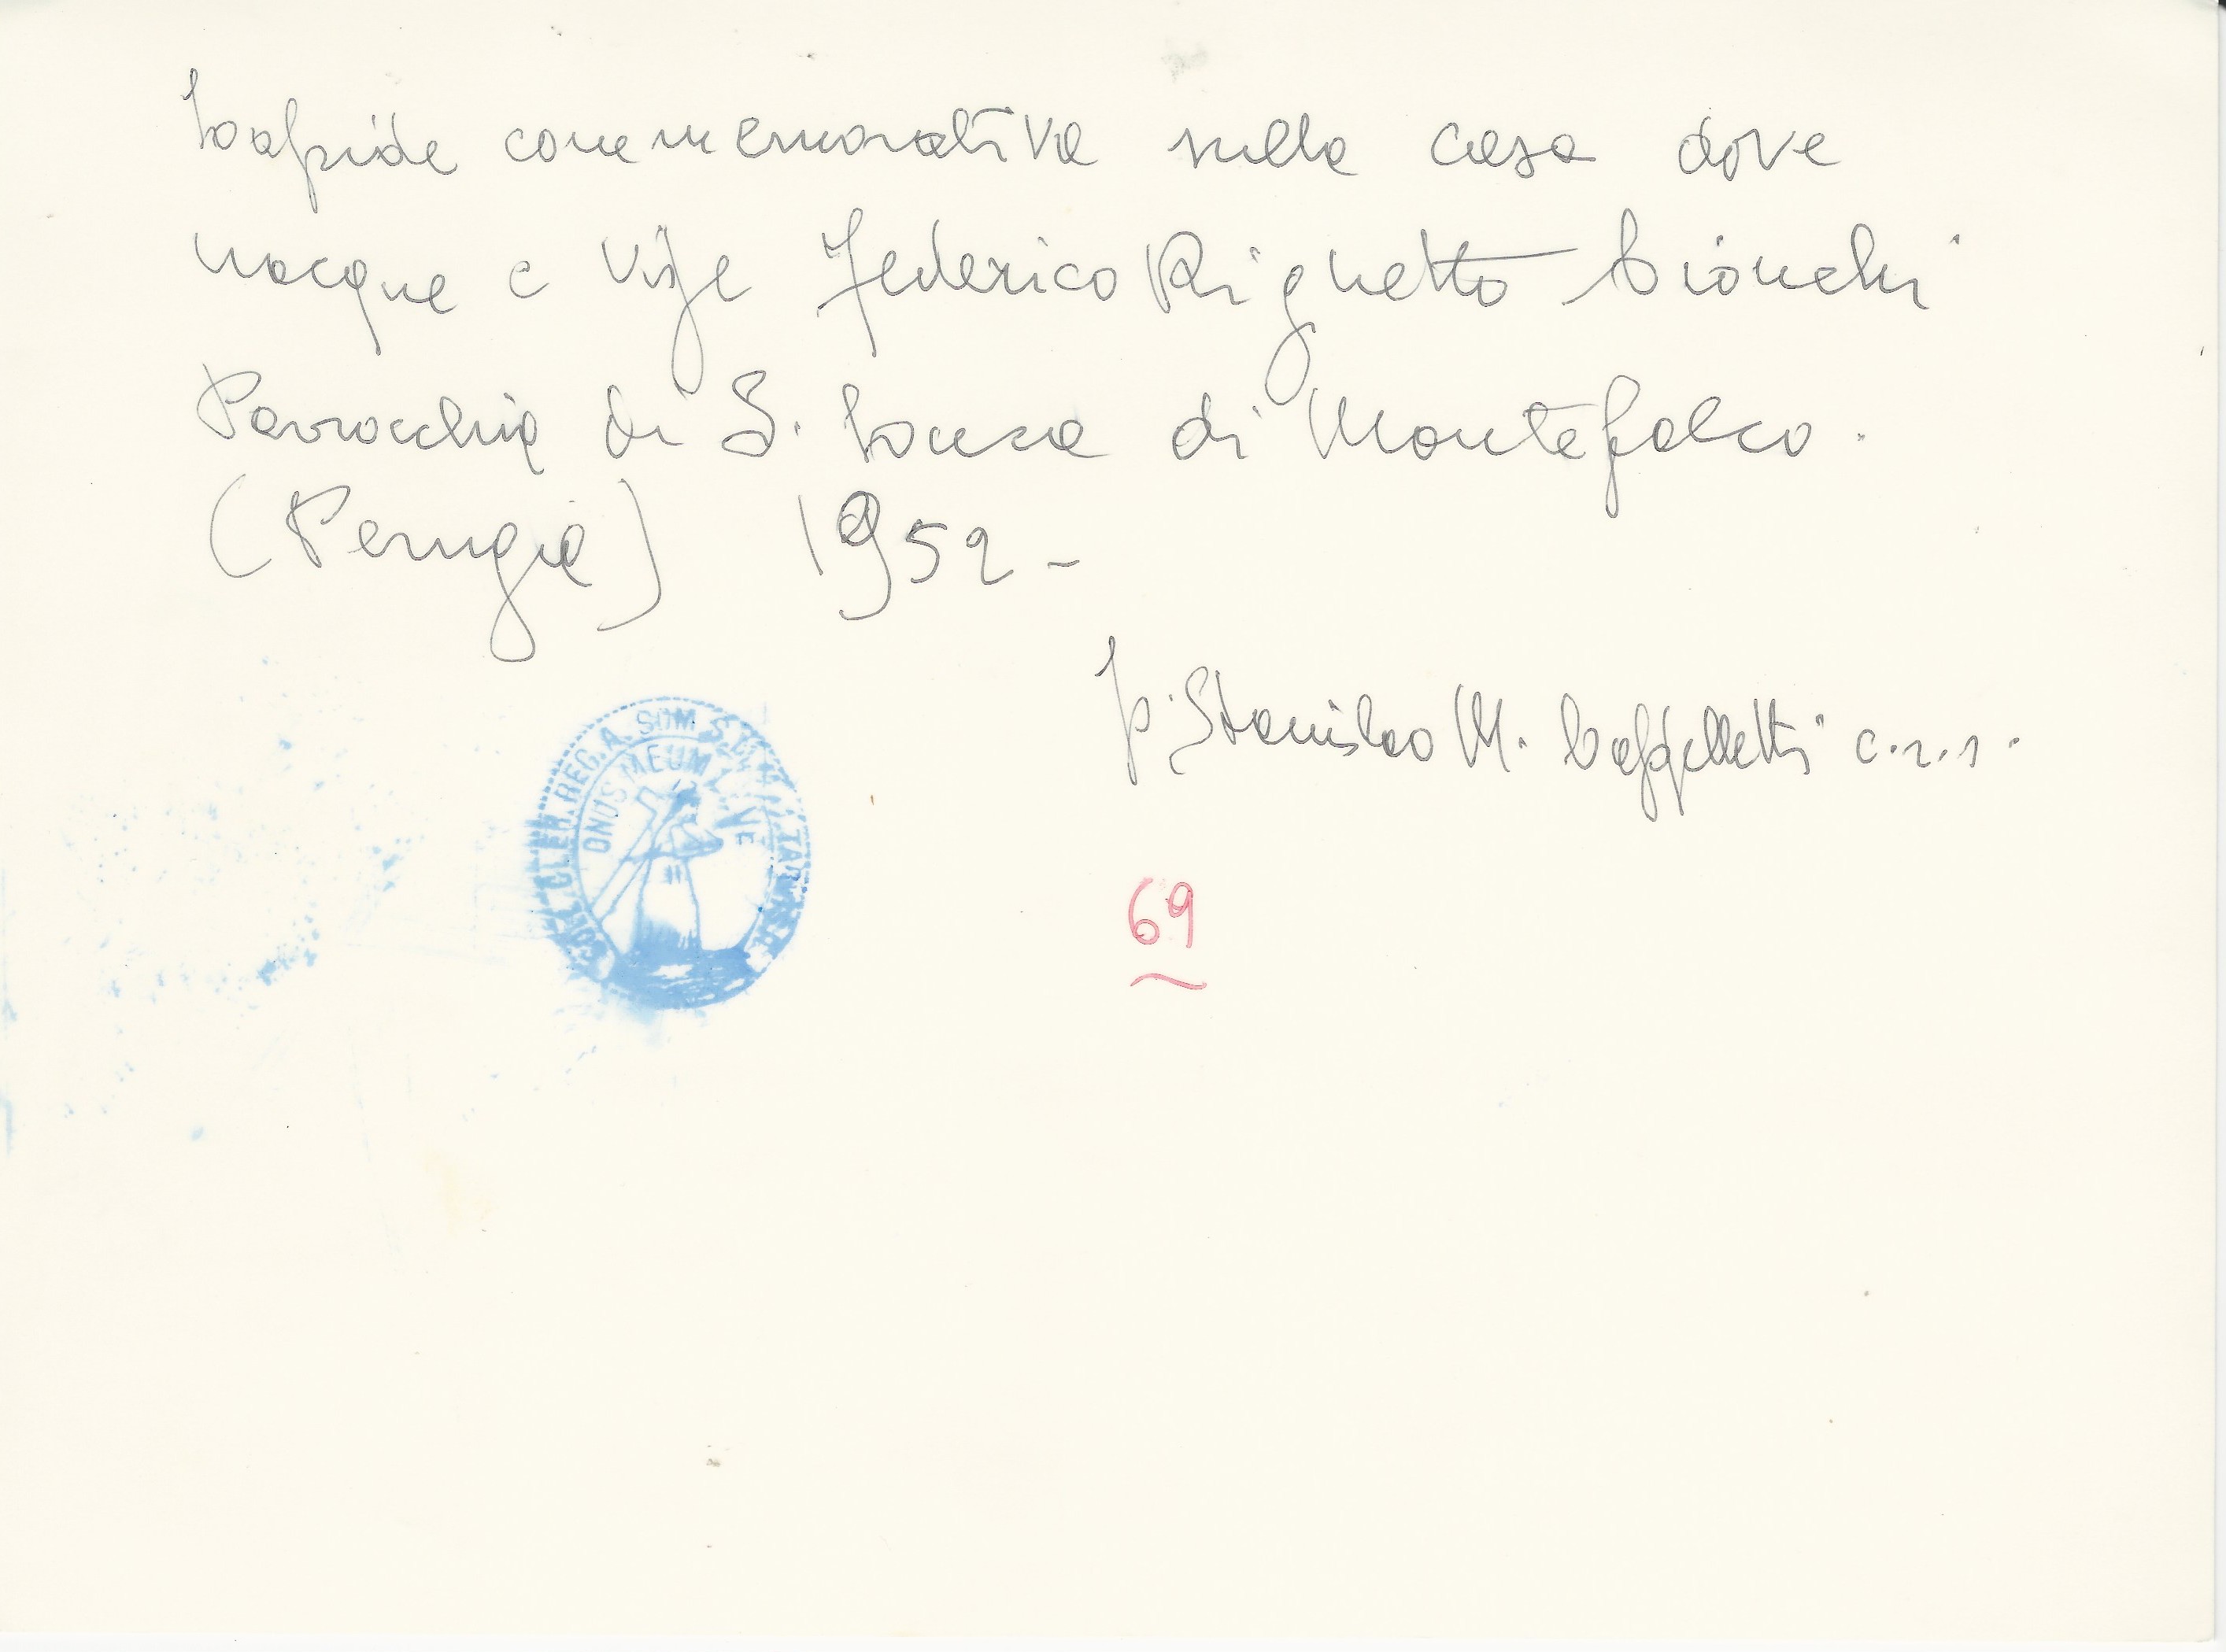 Lapide commemorativa sulla casa dove
nacque e visse Federico Righetto Cionchi
Parrocchia di S. Luca di Montefalco.
(Perugia) 1952 -
P. Stanislao M. Cappelletti c.r.s.
CLER. REG. A. SOM. S. M.
ONUS MEUM LEVE
69